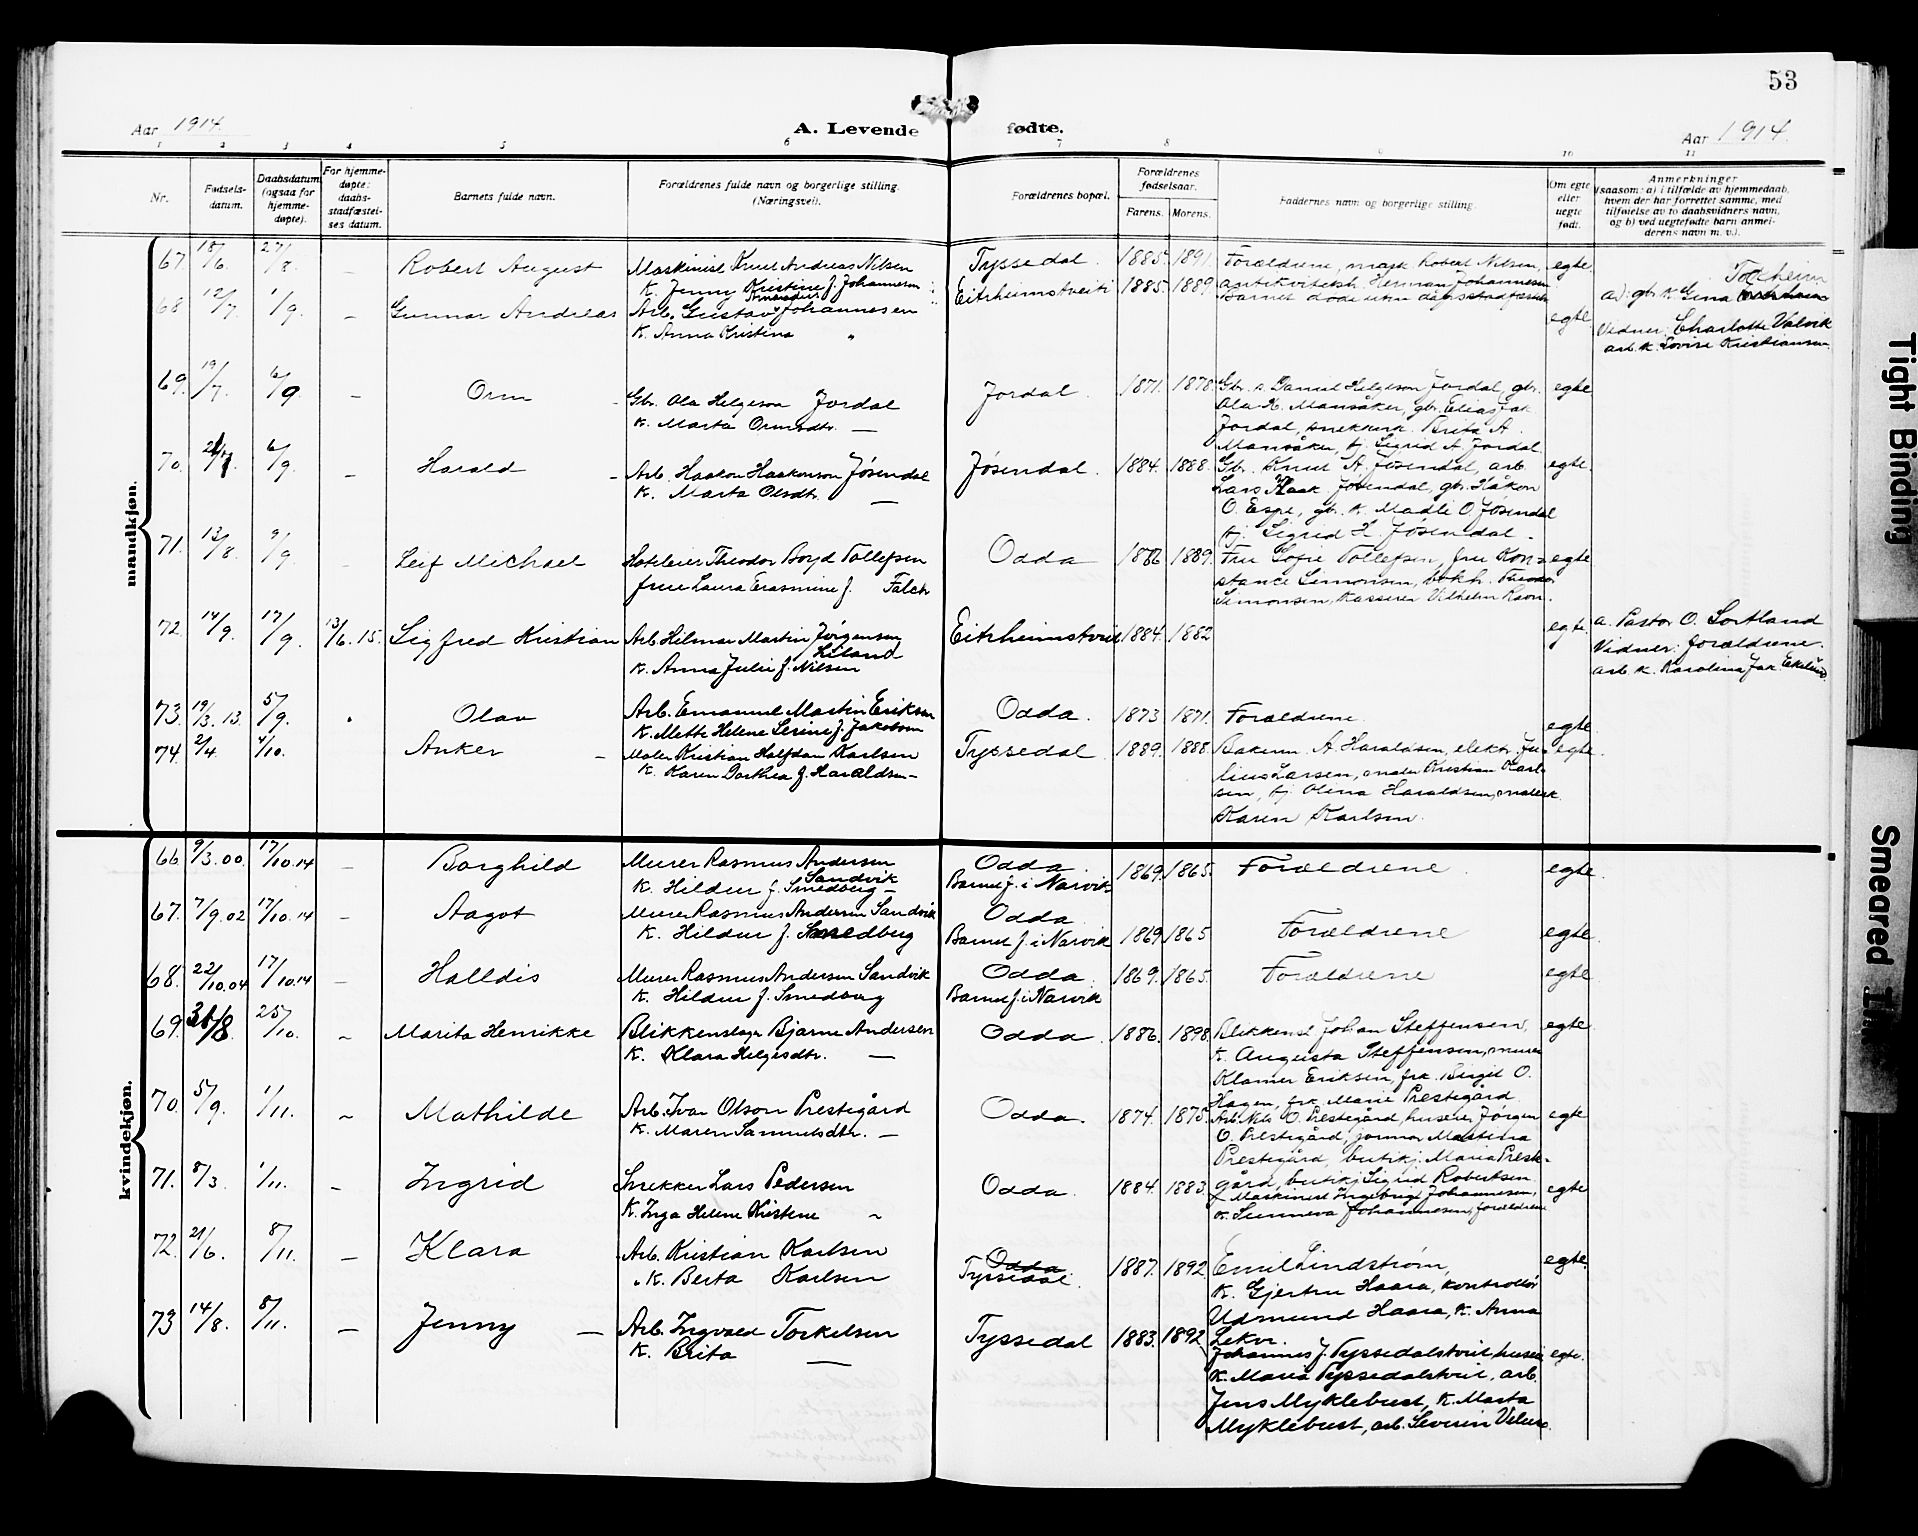 53
Aar 1914.
A. Levende fødte.
Aar 1914.
1 2 3 4 5 6 7 8 9 10 11
Nr.
Fødsels-
datum.
Daabsdatum
(ogsaa for
hjemme-
døpte).
For hjemme-
døpte:
daabs-
stadfæstel-
ses datum.
Barnets fulde navn.
Forældrenes fulde navn og borgerlige stilling.
(Næringsvei).
Forældrenes bopæl.
Forældrenes
fødselsaar.
Farens. Morens.
Faddernes navn og borgerlige stilling.
Om egte
eller
uegte
født.
Anmerkninger
(saasom: a) i tilfælde av hjemmedaab,
hvem der har forrettet samme, med
tilføielse av to daabsvidners navn,
og b) ved uegtefødte barn anmel-
derens navn m. v.).
mandkjøn.
67. 18/6. 27/8. – Robert August
Maskinist Knut Andreas Nilsen
K. Jenny Kristine f. Johannesen
Tyssedal. 1885. 1891.
Forældrene, mask. Robert Nilsen,
Herman Johannesen
egte
68 12/7. 1/9. – Gunnar Andreas
Arb. Gustav Johannesen
K. Anna Kristina "
Eitrheimstveit 1885. 1889.
Barnet døde uten daabsstadfæstelse
egte.
a): gb. K. Gina Tokheim
Vidner: Charlotte Valvik
arb. K. Lovise Kristiansen.
69. 19/7. 6/9. – Orm
Gbr. Ola Helgeson Jordal
K. Marta Ormsdtr. —
Jordal. 1871. 1878.
Gbr. s. Daniel Helgeson Jordal, gbr.
Ola K. Mansåker, gbr. Elias Jak
Jordal, Brita A.
Mansåker, pj. Sigrid A. Jordal.
egte
70. 6/9. – Harald
Arb. Haakon Haakonson Jøsendal
K. Marta Olsdtr. —
Jøsendal. 1884. 1888.
Gbr. Knut A. Jøsendal, arb.
Lars Haak. Jøsendal, gbr. Håkon
O. Espe, gbr. K. Madli O. Jøsendal
pj. Sigrid H. Jøsendal.
egte
71. 13/8. 9/9. Leif Michael
Hoteleier Theodor Boyd Tollefsen
frue Laura Erasmine f. Falch
Odda 1889.
Fru Sofie Tollefsen, fru Kon-
stance Simonsen, bokh.
Simonsen, kasserer Vilhelm Ravn.
egte
72. 14/9. 17/9. 13/6. 15. Sigfred Kristian
Arb. Hilmar Martin Jørgensen
Liland
K. Anna Julie f. Nilsen
Eitrheimstveit 1884. 1882
egte.
a. Pastor O. Sortland
Vidner: forældrene.
arb. K. Karolina Jak. Eklund.
73. 19/3. 13. 5/9. Olav
Arb. Emanuel Martin Eriksen
K. Mette Helene Serine f. Jakobsen
Odda. 1873 1871.
Forældrene.
egte.
74. 2/4. 4/10. Anker –
Maler Kristian Halfdan Karlsen
K. Karen Dorthea f. Haraldsen –
Tyssedal. 1889. 1888.
A. Haraldsen, elektr. Ju-
lius Larsen, maler Kristian Karl-
sen, pj. Olina Haraldsen, malerk.
Karen Karlsen.
egte.
kvindekjøn.
66. 9/3. 00. 17/10. 14 – Borghild
Murer Rasmus Andersen
Sandvik
K. Hildur f. Smedberg –
Odda
Barnet f. i Narvik
1869. 1865.
Forældrene.
egte.
67. 7/9. 02 17/10. 14 – Aagot
Murer Rasmus Andersen Sandvik
K. Hildur f. Smedberg
Odda
Barnet f. i Narvik
1869 1865
Forældrene
egte.
68. 22/10. 04 17/10. 14 – Halldis
Murer Rasmus Andersen Sandvik
K. Hildur f. Smedberg
Odda
Barnet f. i Narvik
1869. 1865.
Forældrene
egte
69. 25/10. – Marita Henrikke
Blikkenslager Bjarne Andersen
K. Klara Helgesdtr. —
Odda. 1886. 1898.
Blikkensl. Johan Steffensen,
K. Augusta Steffensen, murer
Klamer Eriksen, frk. Birgit O.
Hagen, frk. Marie Prestegård.
egte
70. 5/9. 1/11. – Mathilde
Arb. Ivar Olson Prestegård
K. Maren Samuelsdtr. –
Odda. 1874. 1875.
Arb. Nils O. Prestegård, huseier Jørgen
O. Prestegård, jormor Martina
Prestegård, butikj. Maria Prest-
gård, butikj. Sigrid Robertsen
egte
71. 8/3. 1/11. – Ingrid
Snekker Lars Pedersen
K. Inga Helene Kristine "
Odda. 1884. 1883.
Maskinist Ingebrigt Johannesen,
K. Sunneva Johannesen, forældrene
egte
72. 21/6. 8/11. – Klara
Arb. Kristian Karlsen
K. Berta Karlsen
Odda
Tyssedal.
1887. 1892
Emil Lindstrøm,
K. Gjertru Haara, kontrollør
Udmund Haara, K. Anna
Lekve.
egte.
73 14/8. 8/11. – Jenny –
Arb. Ingvald Torkelsen
K. Brita —
Tyssedal 1883. 1892
Johannes J. Tyssedalstveit, huseier
K. Maria Tyssedalstveit, arb.
Jens Myklebust, K. Marta
Myklebust, arb. Severin
egte.
Tight Binding
Smeared Ink